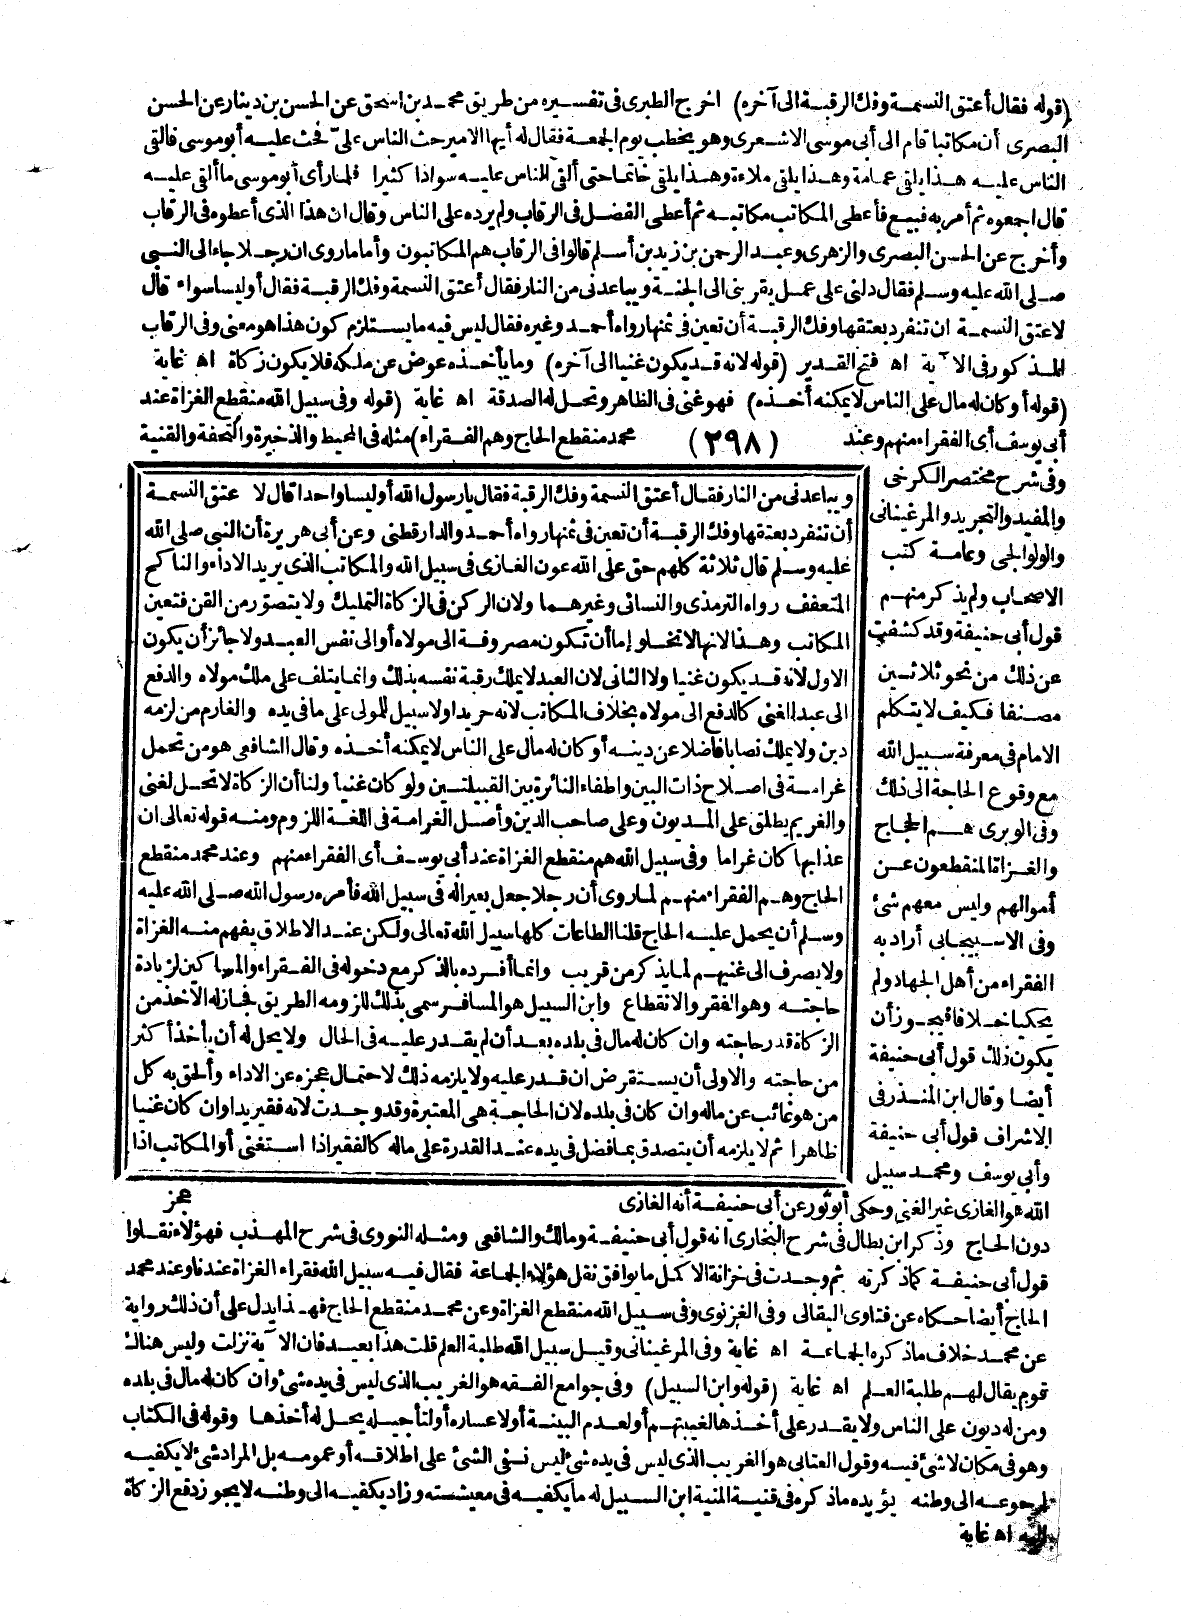 (قوله فقال أعتق النسمة وفك الرقبة الى آخره) اخرج الطبرى فى تفسيره من طريق محمد بن اسحق عن الحسن بن دينار عن الحسن
البصرى أن مكاتبا قام الى أبى موسى الاشعرى وهو يخطب يوم الجمعة فقال له أيها الامير حث الناس علىّ فحث عليه أبو موسى فالقى
الناس عليه هذا يلقى عمامة وهذا يلقى ملاءة وهذا يلقى خاتما حتى ألقى الناس عليه سوادا كثيرا فلما رأى أبو موسى ما ألقى عليه
قال اجمعوه ثم أمر به فبيع فأعطى المكاتب مكاتبه ثم أعطى الفضل فى الرقاب ولم يرده على الناس وقال ان هذا الذى أعطوه فى الرقاب
وأخرج عن الحسن البصرى والزهرى وعبد الرحمن بن زيد بن أسلم قالوا فى الرقاب هم المكاتبون وأما ما روى ان رجلا جاء الى النبى
صلى الله عليه وسلم فقال دلنى على عمل يقربنى الى الجنة ويباعدنى من النار فقال أعتق النسمة وفك الرقبة فقال أوليسا سواء قال
لا عتق النسمة ان تنفرد بعتقها وفك الرقبة أن تعين فى ثمنها رواه أحمد وغيره فقال ليس فيه ما يستلزم كون هذا هو معنى وفى الرقاب
المذكور فى الآية اه فتح القدير (قوله لانه قد يكون غنيا الى آخره) وما يأخذه عوض عن ملكه فلا يكون زكاة اه غاية
(قوله أو كان له مال على الناس لا يمكنه أخذه) فهو غنى فى الظاهر وتحل له الصدقة اه غاية (قوله وفى سبيل الله منقطع الغزاة عند
أبى يوسف أى الفقراء منهم وعند (٢٩٨) محمد منقطع الحاج وهم الفقراء) مثله فى المحيط والذخيرة والتحفة والقنية
وفى شرح مختصر الكرخى
والمفيد والتجريد والمرغينانى
والولوالجى وعامة كتب
الاصحاب ولم يذكر منهم
قول أبى حنيفة وقد كشفت
عن ذلك من نحو ثلاثين
مصنفا فكيف لا يتكلم
الامام فى معرفة سبيل الله
مع وقوع الحاجة الى ذلك
وفى الوبرى هم الحجاج
والغزاة المنقطعون عن
أموالهم وليس معهم شئ
وفى الاسبيجابى أراد به
الفقراء من أهل الجهاد ولم
يحكيا خلافا فيجوز أن
يكون ذلك قول أبى حنيفة
أيضا وقال ابن المنذر فى
الاشراف قول أبى حنيفة
وأبى يوسف ومحمد سبيل
الله هو الغازى غير الغنى وحكى أبو ثور عن أبى حنيفة أنه الغازى
دون الحاج وذكر ابن بطال فى شرح البخارى انه قول أبى حنيفة ومالك والشافعى ومثله النووى فى شرح المهذب فهؤلاء نقلوا
قول أبى حنيفة كما ذكرته ثم وجدت فى خزانة الاكمل ما يوافق نقل هؤلاء الجماعة فقال فيه سبيل الله فقراء الغزاة عندنا وعند محمد
الحاج أيضا حكاه عن فتاوى البقالى وفى الغزنوى وفى سبيل الله منقطع الغزاة وعن محمد منقطع الحاج فهذا يدل على أن ذلك رواية
عن محمد خلاف ما ذكره الجماعة اه غاية وفى المرغينانى وقيل سبيل الله طلبة العلم قلت هذا بعيد فان الآية نزلت وليس هناك
قوم يقال لهم طلبة العلم اه غاية (قوله وابن السبيل) وفى جوامع الفقه هو الغريب الذى ليس فى يده شئ وان كان له مال فى بلده
ومن له ديون على الناس ولا يقدر على أخذها لغيبتهم أو لعدم البينة أو لا عساره أو لتأجيله يحل له أخذها وقوله فى الكتاب
وهو فى مكان لا شئ فيه وقول العتابى هو الغريب الذى ليس فى يده شئ ليس نفى الشئ على اطلاقه أو عمومه بل المراد شئ لا يكفيه
لرجوعه الى وطنه يؤيده ما ذكره فى قنية المنية ابن السبيل له ما يكفيه فى معيشته وزاد يكفيه الى وطنه لا يجوز دفع الزكاة
اليه اه غاية
ويباعدنى من النار فقال أعتق النسمة وفك الرقبة فقال يا رسول الله أوليسا واحدا قال لا عتق النسمة
أن تنفرد بعتقها وفك الرقبة أن تعين فى ثمنها رواه أحمد والدارقطنى وعن أبى هريرة أن النبى صلى الله
عليه وسلم قال ثلاثة كلهم حق على الله عون الغازى فى سبيل الله والمكاتب الذى يريد الاداء والناكح
المتعفف رواه الترمذى والنسائى وغيرهما ولان الركن فى الزكاة التمليك ولا يتصوّر من القن فتعين
المكاتب وهذا لانها لا تخلو إما أن تكون مصروفة الى مولاه أو الى نفس العبد ولا جائز أن يكون
الاول لانه قد يكون غنيا ولا الثانى لان العبد لا يملك رقبة نفسه بذلك وانما يتلف على ملك مولاه والدفع
الى عبد الغنى كالدفع الى مولاه بخلاف المكاتب لانه حر يدا ولا سبيل للمولى على ما فى يده والغارم من لزمه
دين ولا يملك نصابا فاضلا عن دينه أو كان له مال على الناس لا يمكنه أخذه وقال الشافعى هو من تحمل
غرامة فى اصلاح ذات البين واطفاء النائرة بين القبيلتين ولو كان غنيا ولنا أن الزكاة لا تحل لغنى
والغريم يطلق على المديون وعلى صاحب الدين وأصل الغرامة فى اللغة اللزوم ومنه قوله تعالى ان
عذابها كان غراما وفى سبيل الله هم منقطع الغزاة عند أبى يوسف أى الفقراء منهم وعند محمد منقطع
الحاج وهم الفقراء منهم لما روى أن رجلا جعل بعيرا له فى سبيل الله فأمره رسول الله صلى الله عليه
وسلم أن يحمل عليه الحاج قلنا الطاعات كلها سبيل الله تعالى ولكن عند الاطلاق يفهم منه الغزاة
ولا يصرف الى غنيهم لما يذكر من قريب وانما أفرده بالذكر مع دخوله فى الفقراء والمساكين لزيادة
حاجته وهو الفقر والانقطاع وابن السبيل هو المسافر سمى بذلك للزومه الطريق فجاز له الاخذ من
الزكاة قدر حاجته وان كان له مال فى بلده بعد أن لم يقدر عليه فى الحال ولا يحل له أن يأخذ أكثر
من حاجته والاولى أن يستقرض ان قدر عليه ولا يلزمه ذلك لاحتمال عجزه عن الاداء وألحق به كل
من هو غائب عن ماله وان كان فى بلده لان الحاجة هى المعتبرة وقد وجدت لانه فقير يدا وان كان غنيا
ظاهرا ثم لا يلزمه أن يتصدق بما فضل فى يده عند القدرة على ماله كالفقير اذا استغنى أو المكاتب اذا
عجز